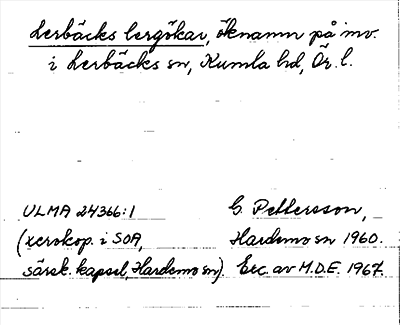 Lerbäcks lergökar, öknamn på inv.
i Lerbäcks sn, Kumla hd, Ör. l.
ULMA 24366:1 G. Pettersson,
(xerokop. i SOA, Hardemo sn 1960.
särsk. kapsel, Hardemo sn). Exc. av M.D.E. 1967.